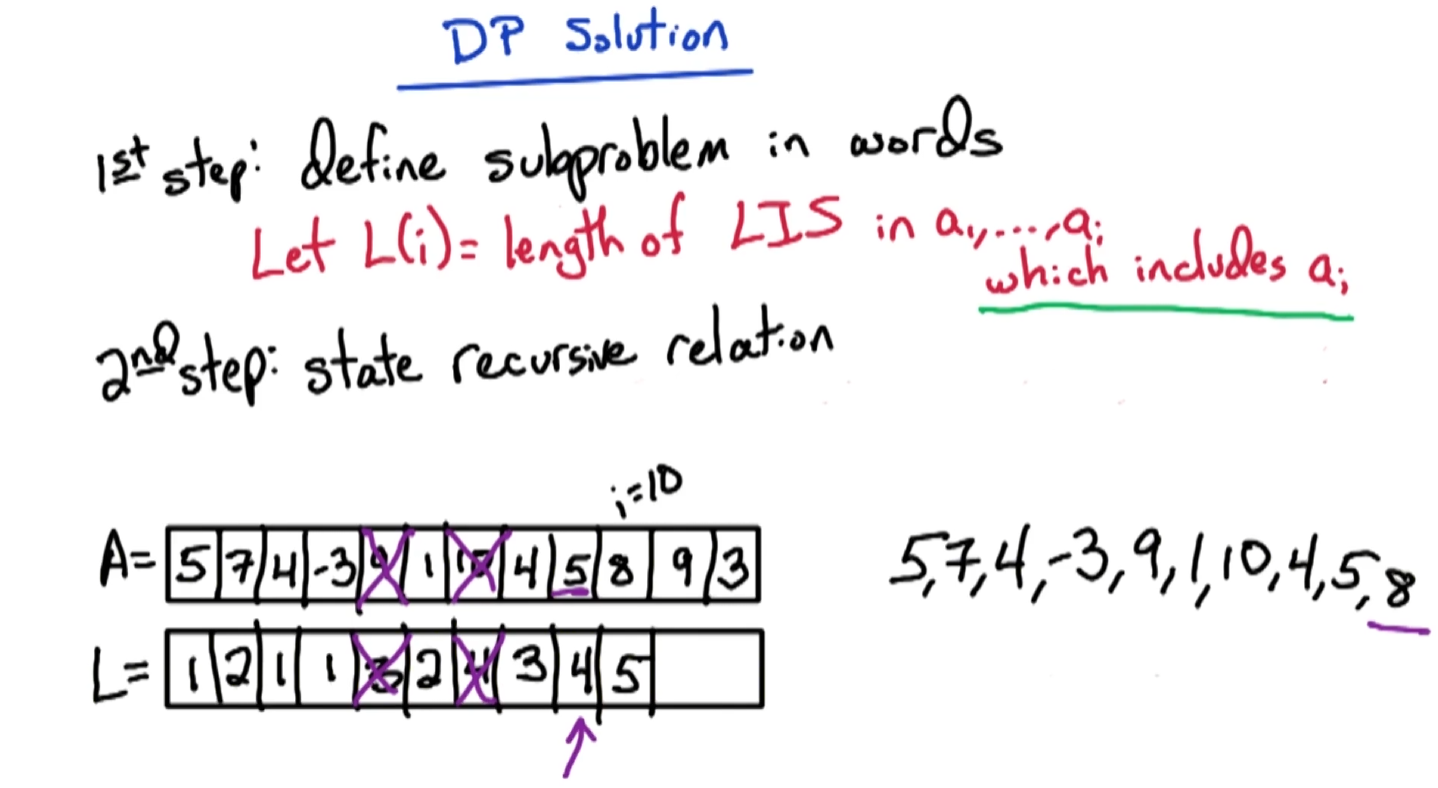 DP Solution
1st step: define subproblem in words
Let L(i) = length of LIS in a₁,...,aᵢ
which includes aᵢ
2nd step: state recursive relation
i=10
A= 5 7 4 -3 9 1 10 4 5 8 9 3
5,7,4,-3,9,1,10,4,5,8
L= 1 2 1 1 3 2 4 3 4 5